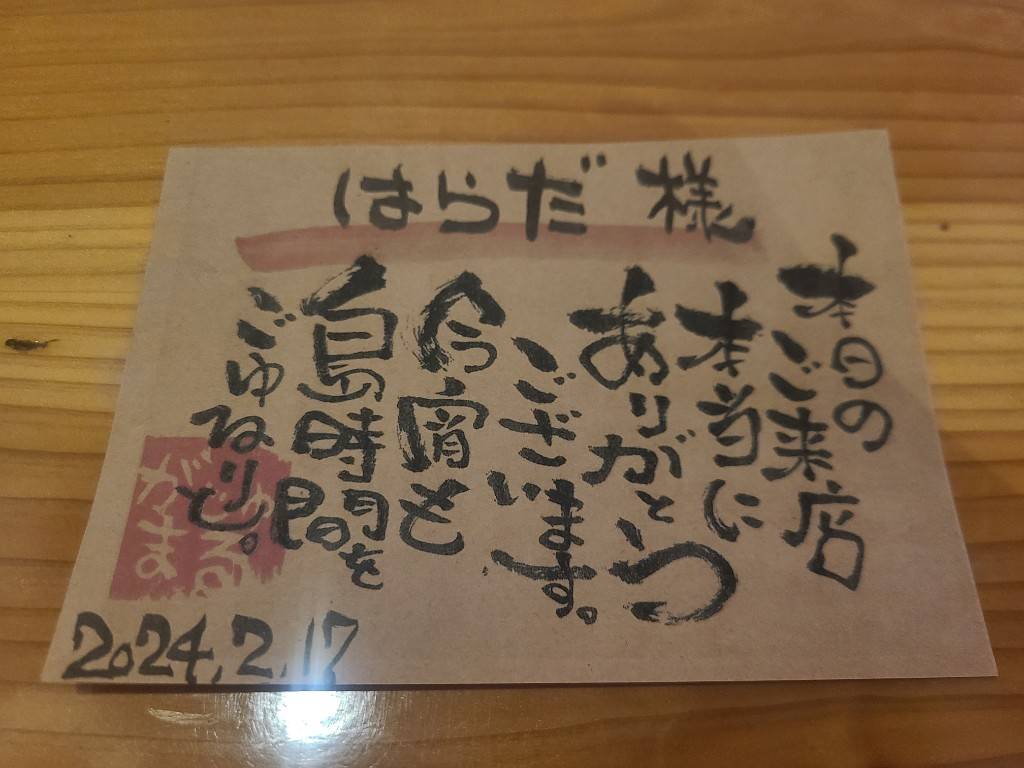 はらだ 様
本日の
ご来店
本当に
ありがとう
ございます。
今宵も
島時間を
ごゆるりと。
2024.2.17